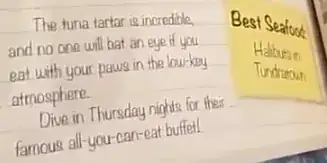 The tuna tartar is incredible,
and no one will bat an eye if you
eat with your paws in the low-key
atmosphere.
Dive in Thursday nights for their
famous all-you-can-eat buffet!
Best Seafood:
Halibuts in
Tundratown